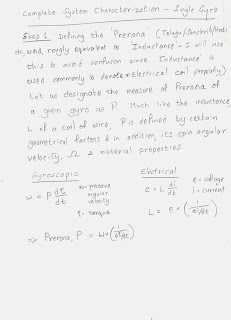 Complete System Characterization - Single Gyro
Step 1 Defining the Prerana (Telugu/Sanskrit/Hindi
etc, word, roughly equivalent to 'Inductance' - I will use
this to avoid confusion since 'Inductance' is
used commonly to denote an electrical coil property)
Let us designate the measure of Prerana of
a given gyro as P. Much like the inductance
L of a coil of wire, P is defined by certain
geometrical factors & in addition, its spin angular
velocity, Ω & material properties
Gyroscopic
ω = P dτ/dt
ω = precession
angular
velocity
τ = torque
Electrical
e = L di/dt
e = voltage
i = current
L = e × (1/(di/dt))
⇒ Prerana, P = ω × (1/(dτ/dt))